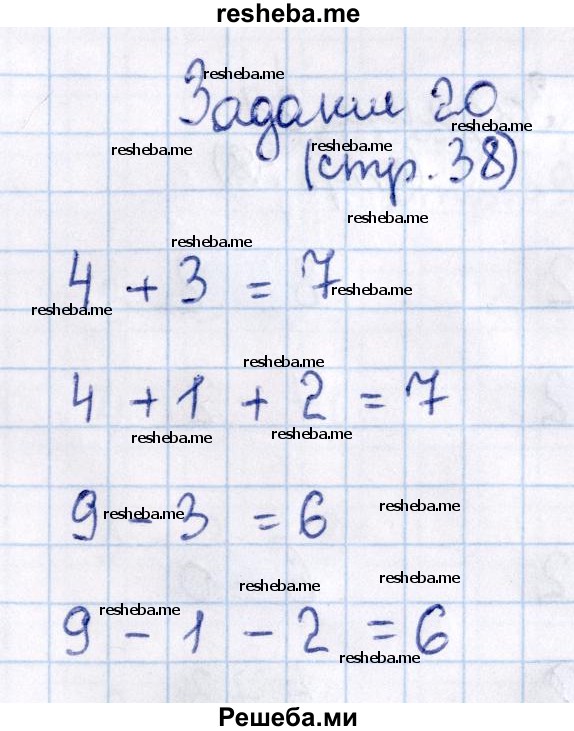 resheba.me
resheba.me
Задания 20
resheba.me
resheba.me
resheba.me
(стр. 38)
resheba.me
resheba.me
4 + 3 = 7
resheba.me
resheba.me
resheba.me
4 + 1 + 2 = 7
resheba.me
resheba.me
9 - 3 = 6
resheba.me
resheba.me
resheba.me
resheba.me
9 - 1 - 2 = 6
resheba.me
resheba.me
Решеба.ми